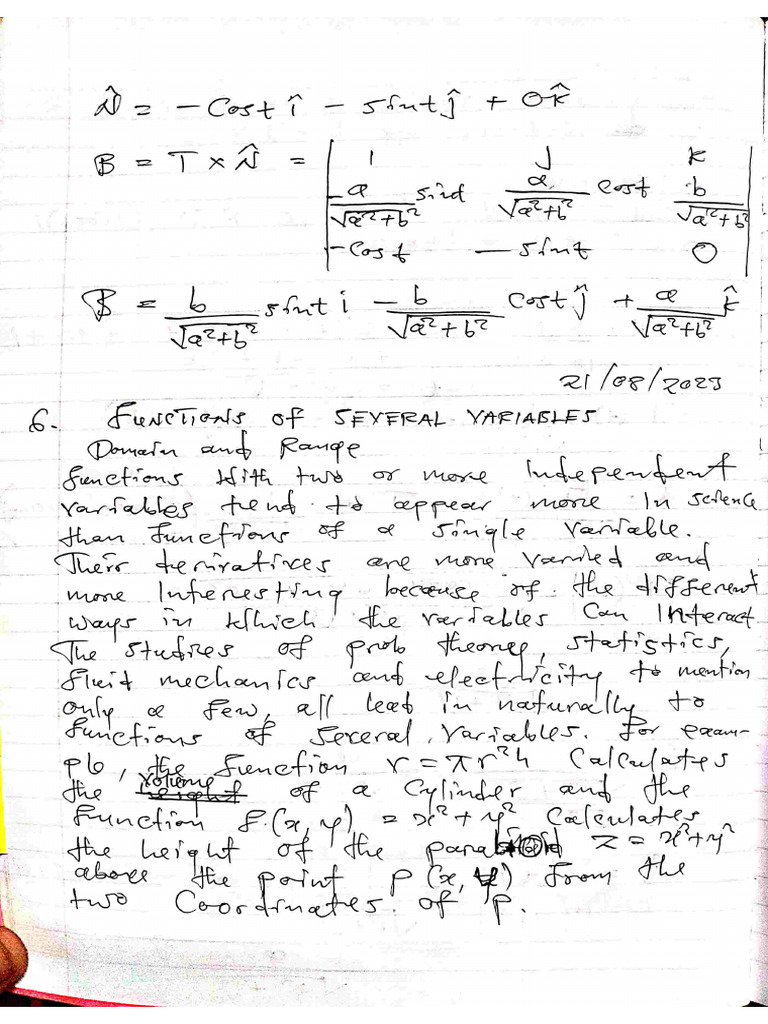 N̂ = - Cost î - sint ĵ + 0k̂
B = T × N̂ = | i j k |
| -a/√a²+b² sint a/√a²+b² cost b/√a²+b² |
| -Cost - sint 0 |
B = b/√a²+b² sint i - b/√a²+b² Cost ĵ + a/√a²+b² k̂
21/08/2023
6. FUNCTIONS OF SEVERAL VARIABLES.
Domain and Range
functions with two or more Independent
variables tend to appear more In science
than functions of a single variable.
Their derivatives are more varied and
more Interesting because of the different
ways in which the variables can Interact
The studies of prob theory, statistics,
fluid mechanics and electricity to mention
only a few, all lead in naturally to
functions of several variables. For exam-
ple, the function v = πr²h Calculates
the volume of a cylinder and the
function f(x, y) = x² + y² Calculates
the height of the paraboloid z = x² + y²
above the point p (x, y) from the
two Coordinates of p.